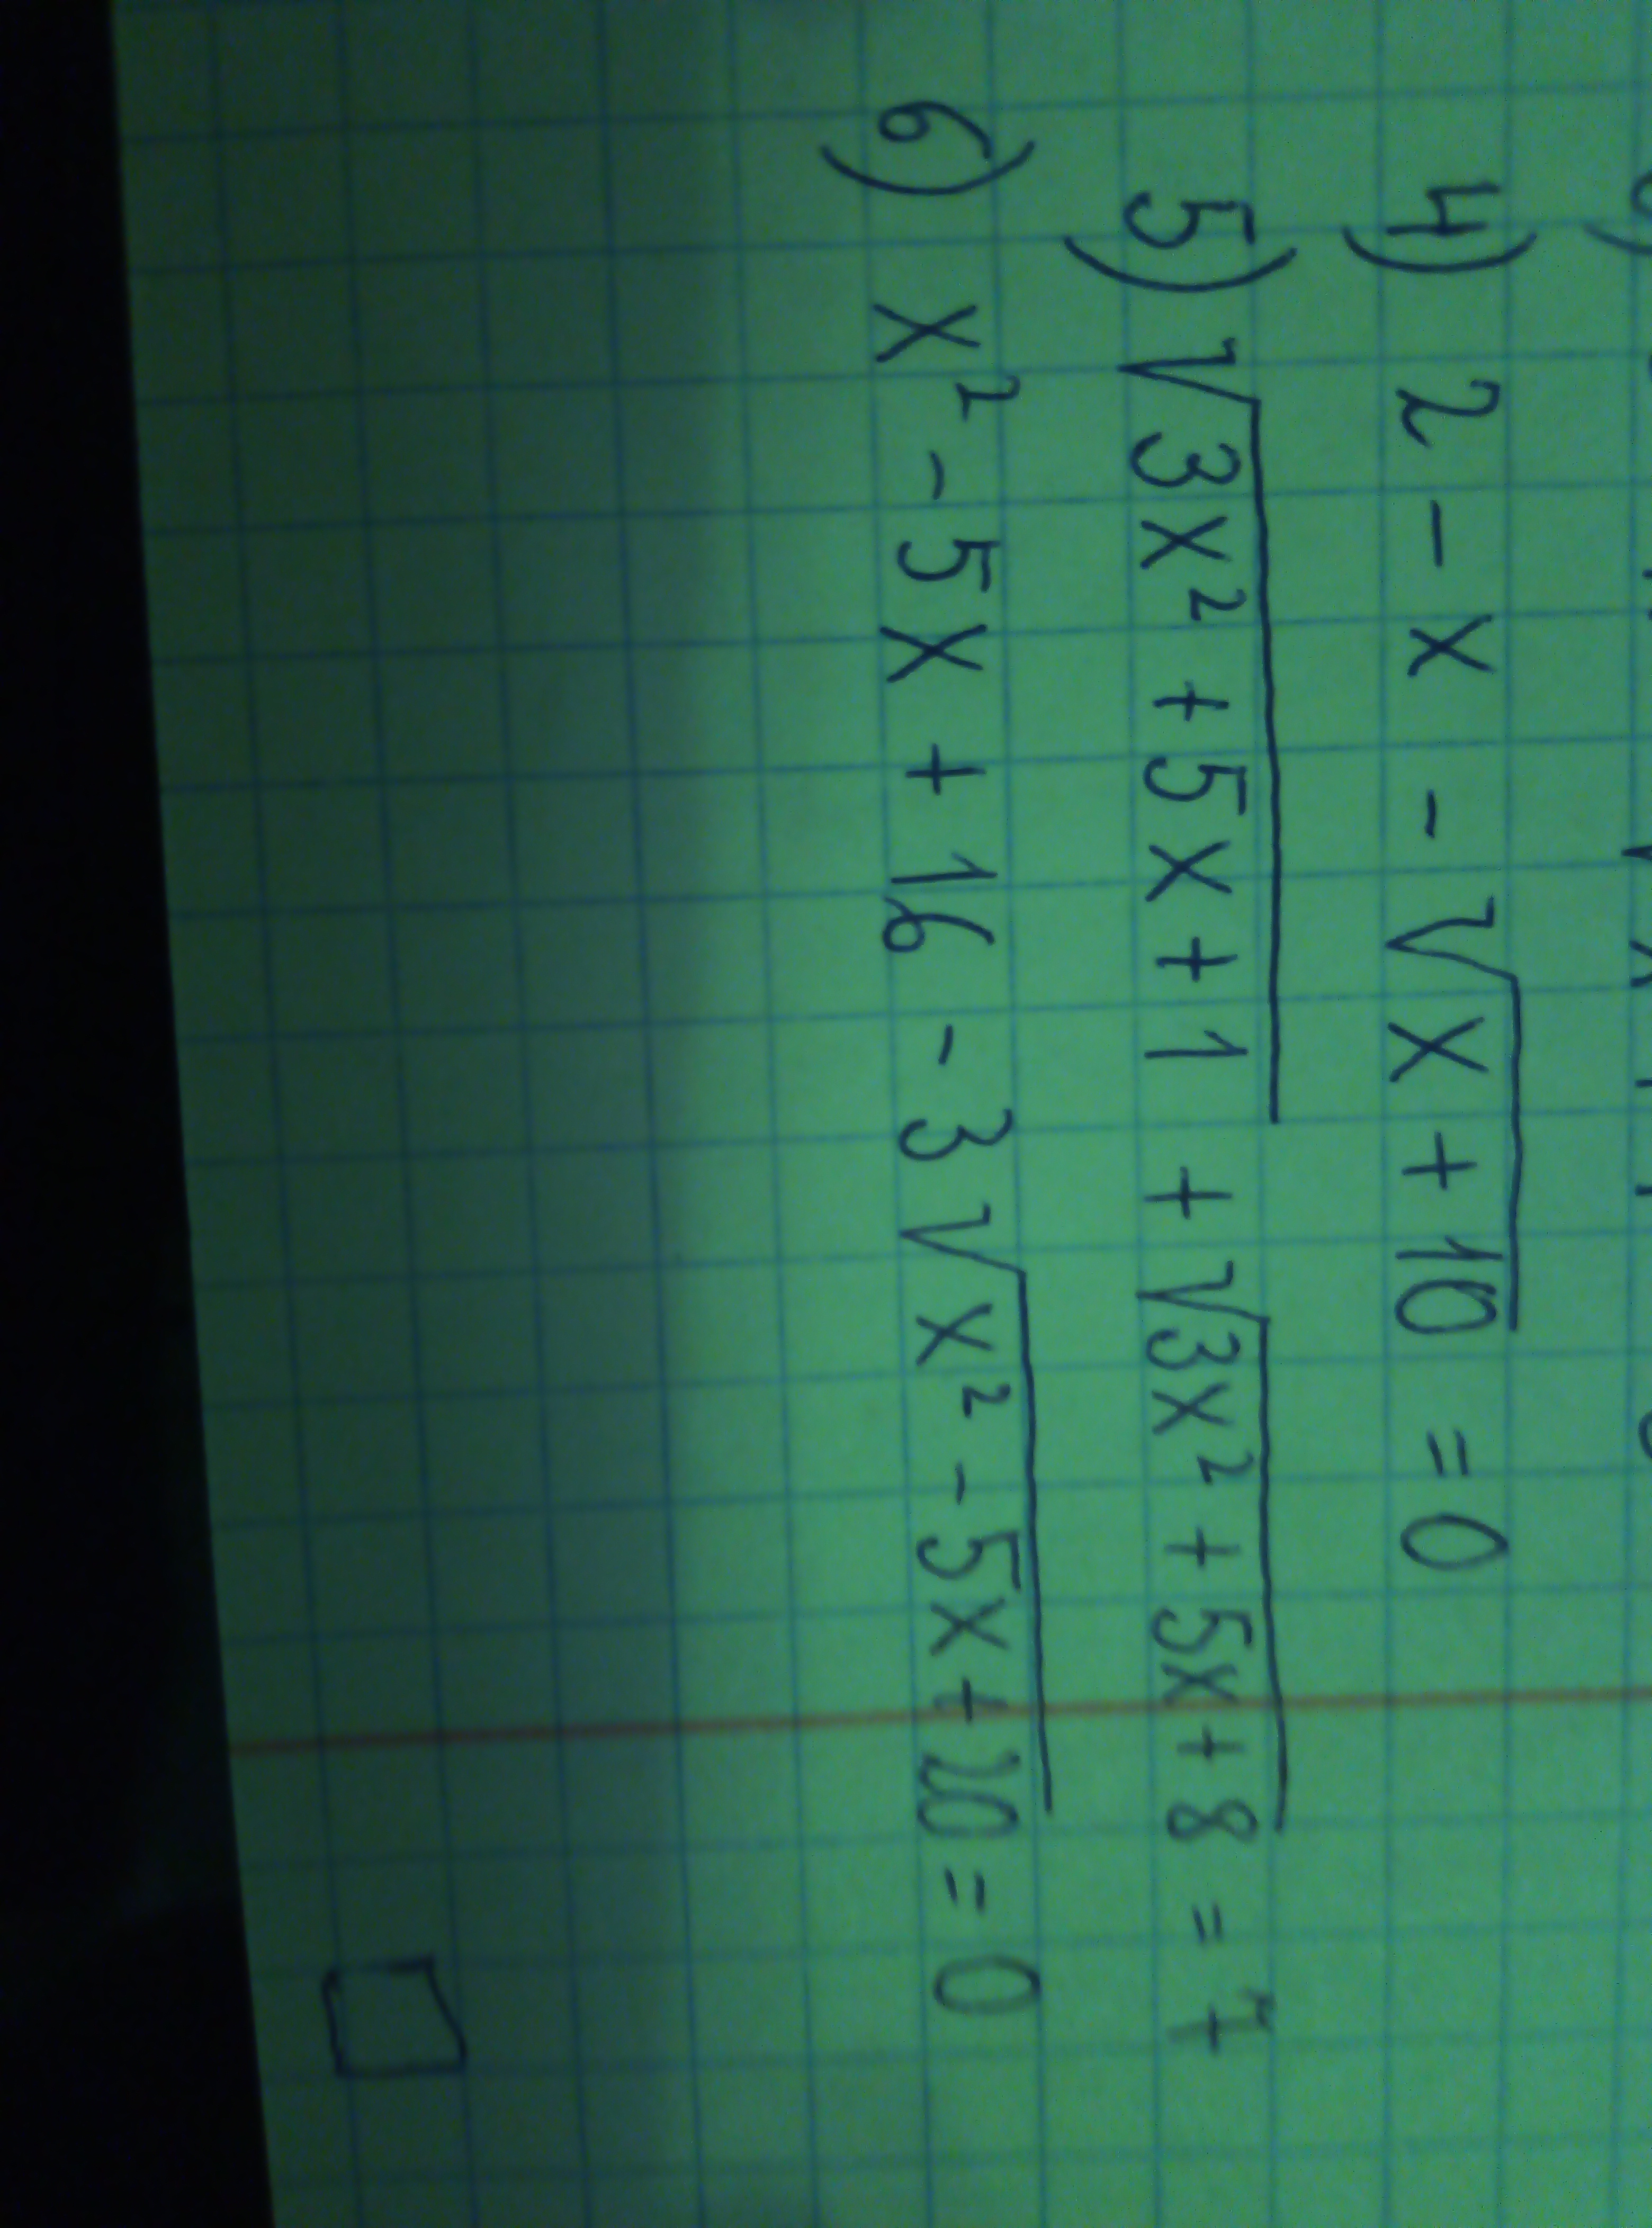 4) 2 - x - √(x + 10) = 0
5) √(3x² + 5x + 1) + √(3x² + 5x + 8) = 7
6) x² - 5x + 16 - 3√(x² - 5x + 20) = 0